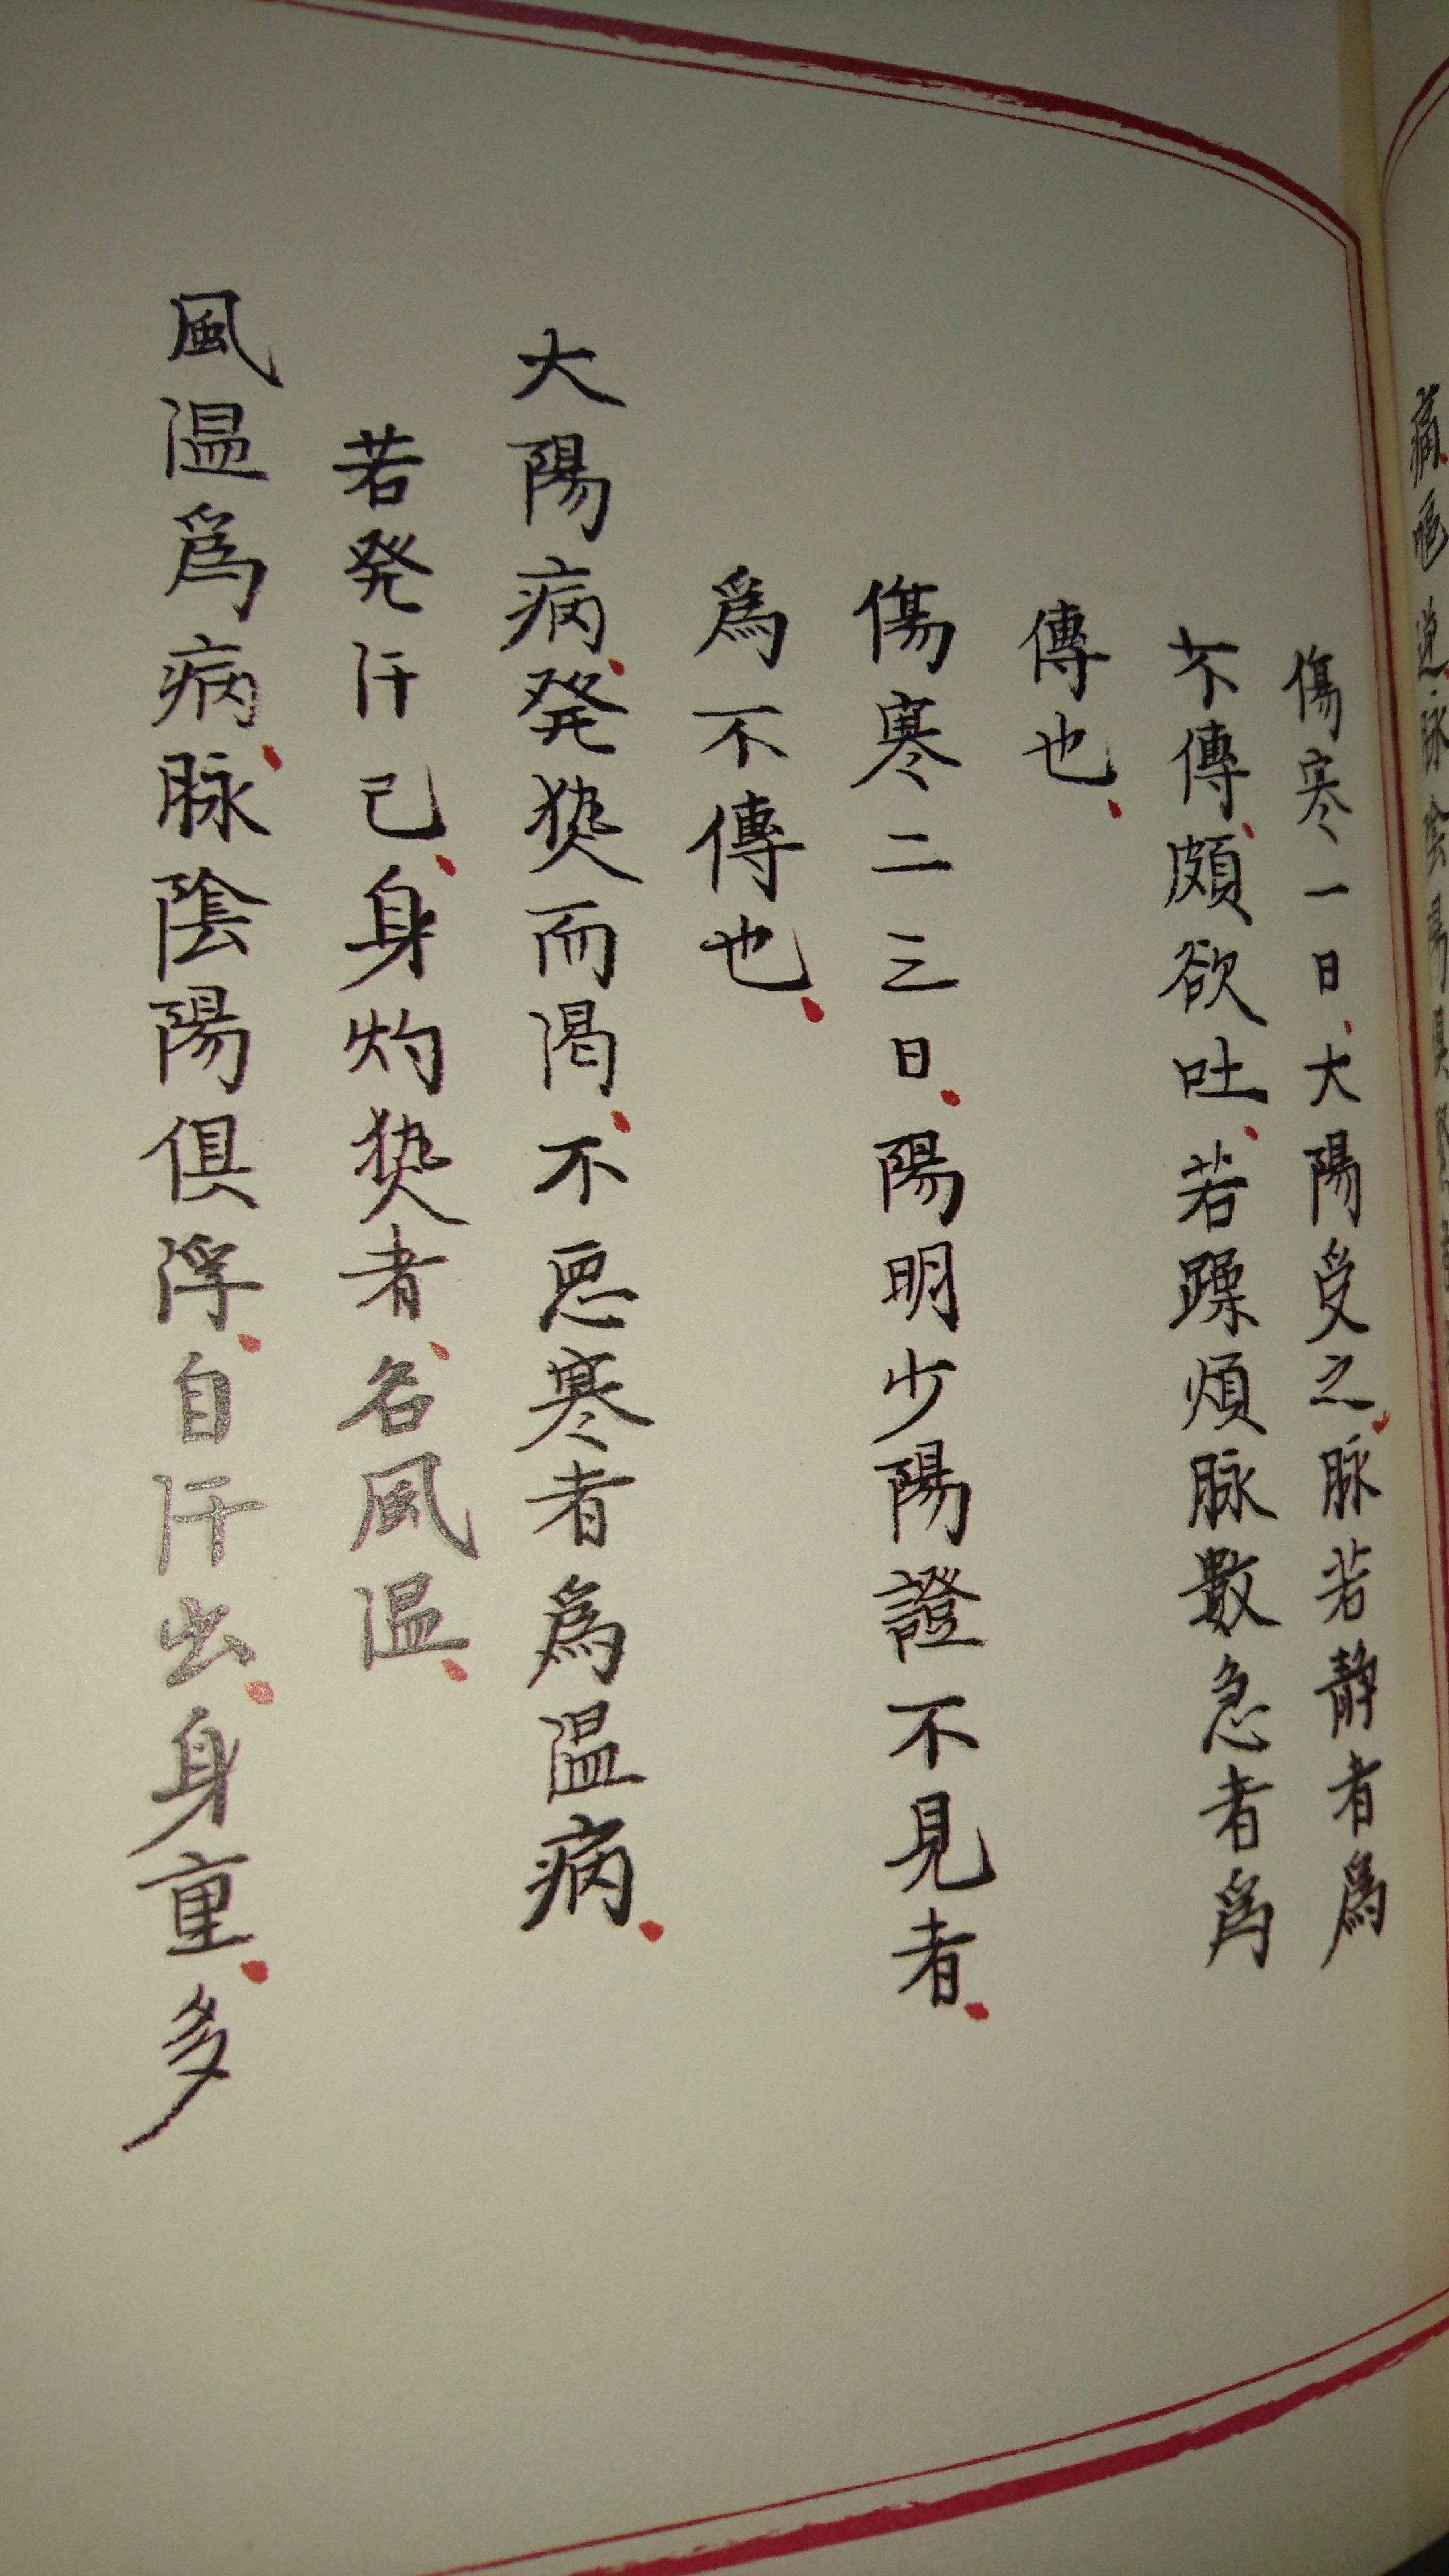 痛嘔逆脉陰陽俱緊
傷寒一日、大陽受之、脉若靜者爲
不傳、頗欲吐、若躁煩脉數急者爲
傳也、
傷寒二三日、陽明少陽證不見者、
爲不傳也、
大陽病、発熱而渴、不惡寒者爲温病、
若発汗己、身灼熱者、名風温、
風温爲病、脉陰陽俱浮、自汗出、身重、多